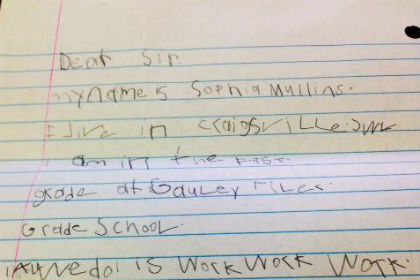 Dear Sir
my name is Sophia Mullins.
I live in craigsville. wv
I am in the First.
grade at Gauley River.
Grade School.
All we do is work work work.